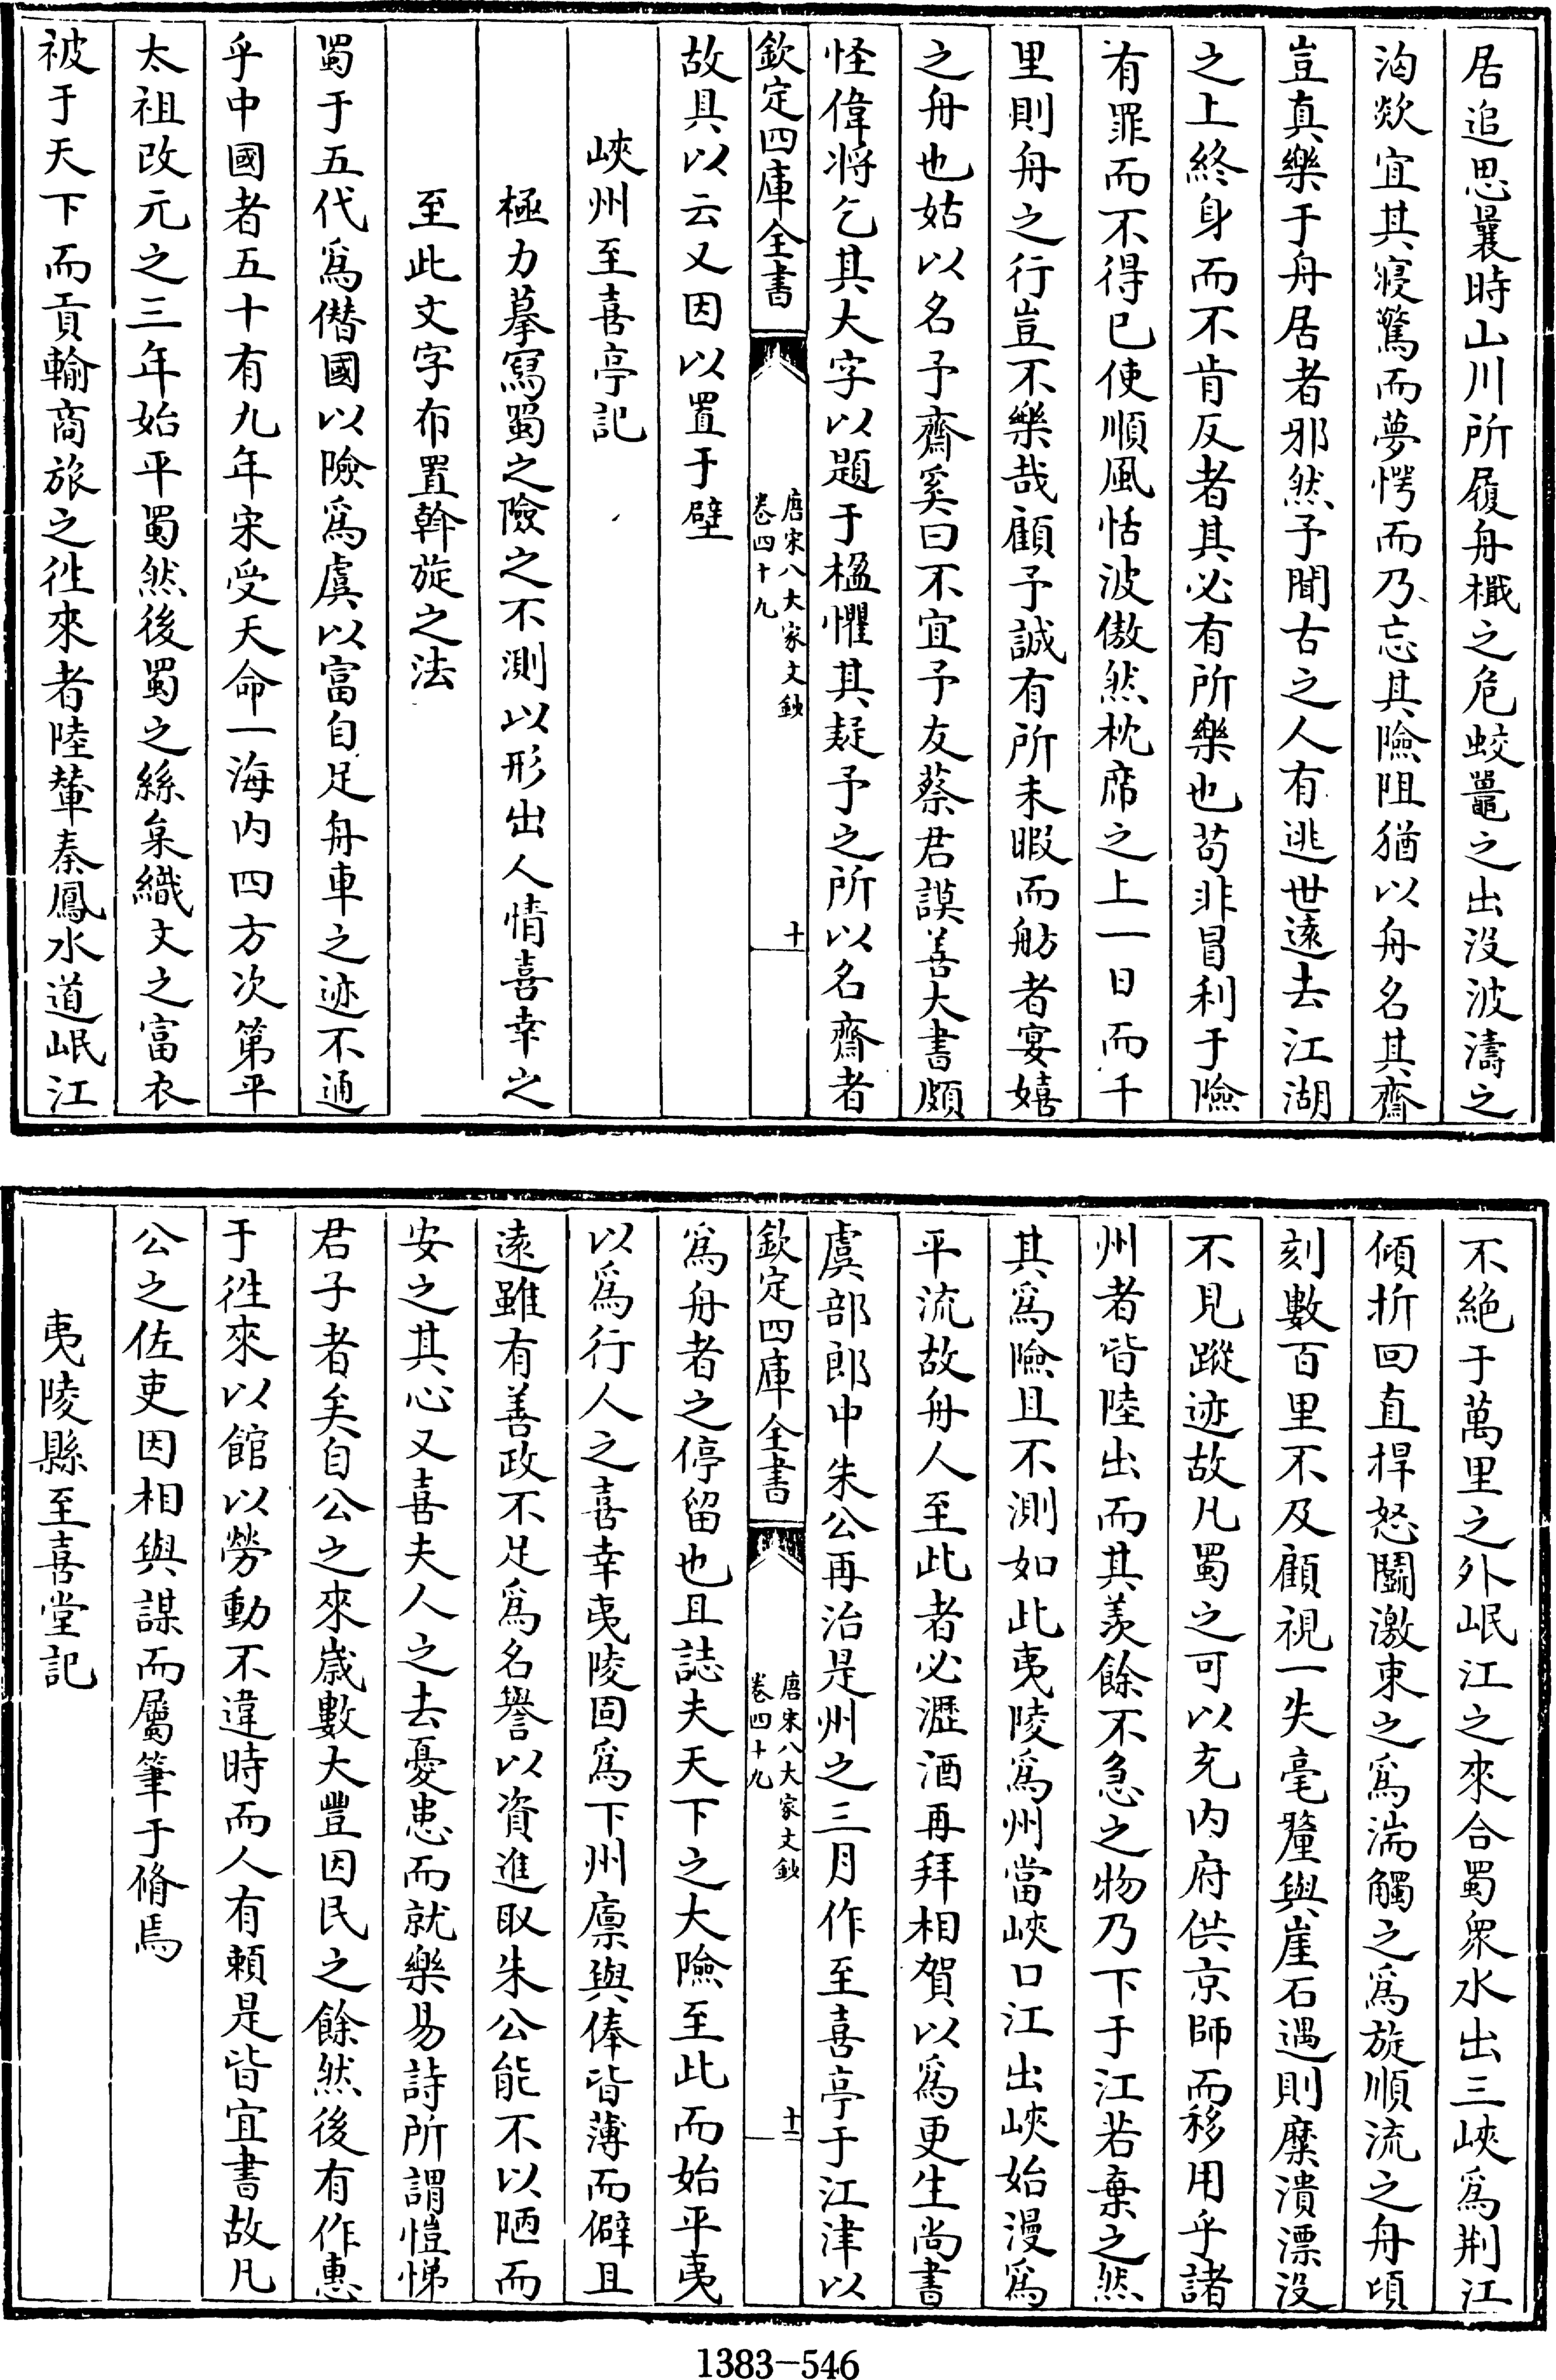 居追思曩時山川所履舟檝之危蛟鼉之出没波濤之
洶歘宜其寢驚而夢愕而乃忘其險阻猶以舟名其齋
豈真樂于舟居者邪然予聞古之人有逃世逺去江湖
之上終身而不肯反者其必有所樂也苟非冒利于險
有罪而不得已使順風恬波傲然枕席之上一日而千
里則舟之行豈不樂哉顧予誠有所未暇而舫者宴嬉
之舟也姑以名予齋奚曰不宜予友蔡君謨善大書頗
怪偉将乞其大字以題于楹懼其疑予之所以名齋者
欽定四庫全書
唐宋八大家文鈔
卷四十九
十
故具以云又因以置于壁
峽州至喜亭記
極力摹寫蜀之險之不測以形出人情喜幸之
至此文字布置斡旋之法
蜀于五代爲僣國以險爲虞以富自足舟車之迹不通
乎中國者五十有九年宋受天命一海内四方次第平
太祖改元之三年始平蜀然後蜀之絲枲織文之富衣
被于天下而貢輸商旅之徃來者陸輦秦鳳水道岷江
不絶于萬里之外岷江之來合蜀衆水出三峽爲荆江
傾折回直捍怒鬬激束之爲湍觸之爲旋順流之舟頃
刻數百里不及顧視一失毫釐與崖石遇則糜潰漂没
不見蹤迹故凡蜀之可以充内府供京師而移用乎諸
州者皆陸出而其羡餘不急之物乃下于江若棄之然
其爲險且不測如此夷陵爲州當峽口江出峽始漫爲
平流故舟人至此者必瀝酒再拜相賀以爲更生尚書
虞部郎中朱公再治是州之三月作至喜亭于江津以
欽定四庫全書
唐宋八大家文鈔
卷四十九
十一
爲舟者之停留也且誌夫天下之大險至此而始平夷
以爲行人之喜幸夷陵固爲下州廪與俸皆薄而僻且
逺雖有善政不足爲名譽以資進取朱公能不以陋而
安之其心又喜夫人之去憂患而就樂易詩所謂愷悌
君子者矣自公之來歳數大豐因民之餘然後有作惠
于徃來以館以勞動不違時而人有賴是皆宜書故凡
公之佐吏因相與謀而屬筆于脩焉
夷陵縣至喜堂記
1383-546